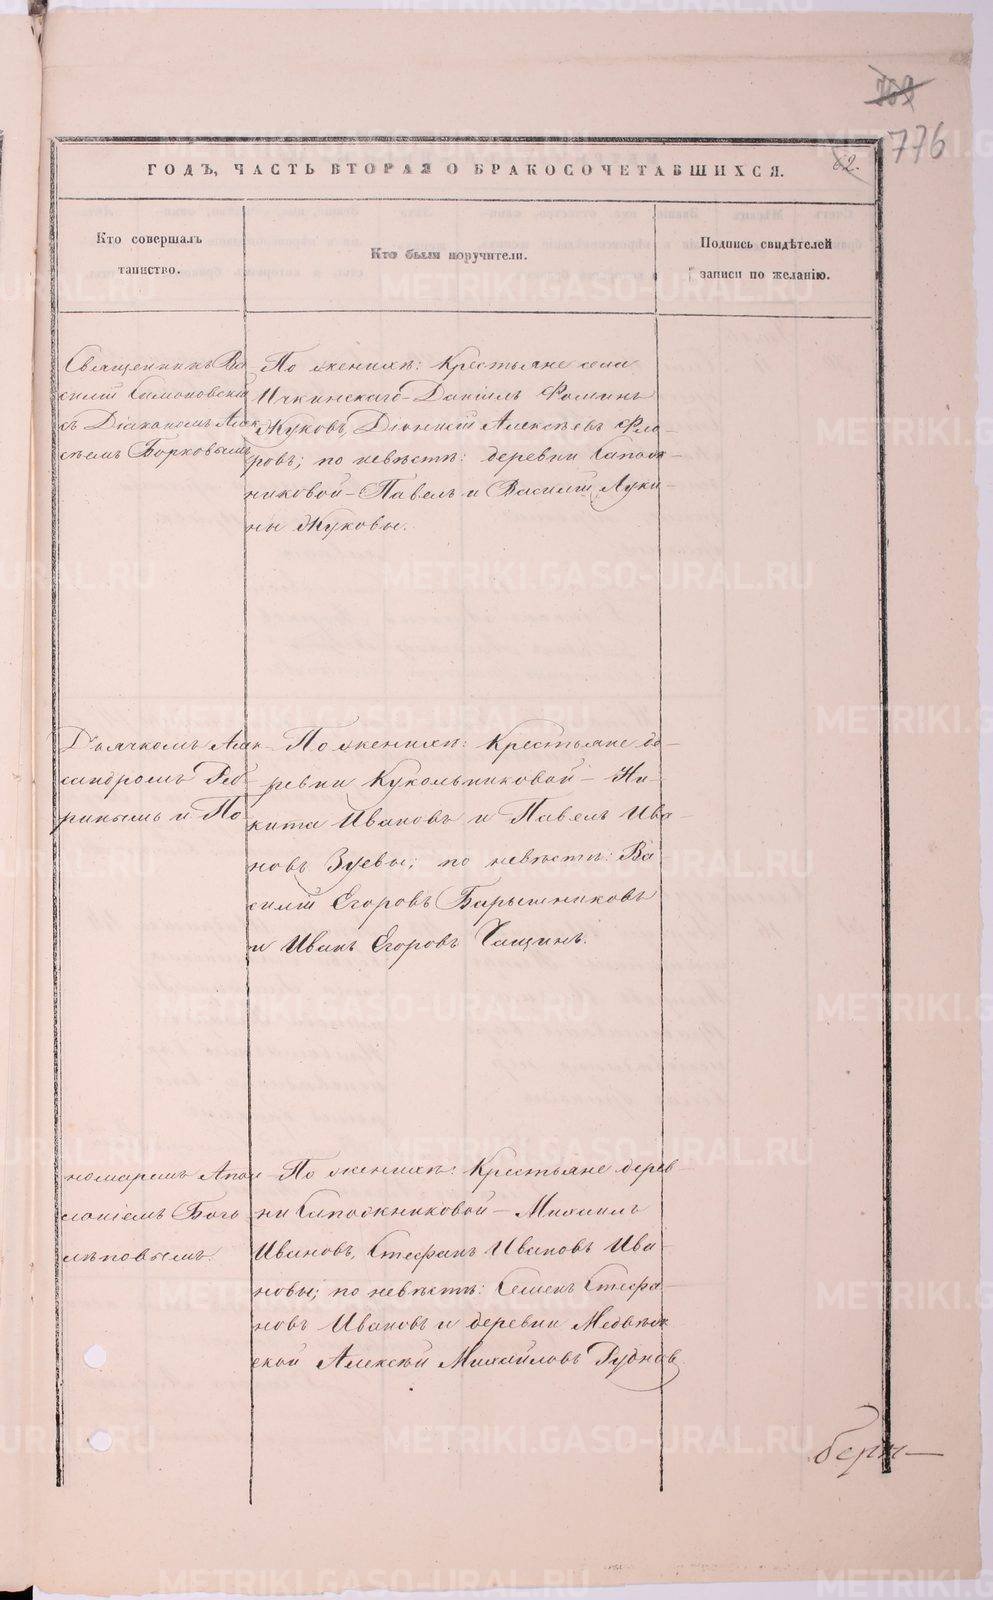 769
776
ГОДЪ, ЧАСТЬ ВТОРАЯ О БРАКОСОЧЕТАВШИХСЯ.
62.
Кто совершалъ
таинство.
Кто были поручители.
Подпись свидѣтелей
записи по желанію.
Священникъ Ва
силій
съ Діакономъ Алек
сѣемъ Борковымъ
По женихѣ: Крестьяне села
Ичкинскаго – Даніилъ Фоминъ
Жуковъ, Діонисій Алексѣевъ Фло
ровъ; по невѣстѣ: деревни Сапож-
никовой – Павелъ и Василій Луки-
ны Жуковы.
Дьячкомъ Алек-
сандромъ
и По-
По женихѣ: Крестьяне де-
ревни Кукольниковой – Ни-
кита Ивановъ и Павелъ Ива-
новъ Зуевы; по невѣстѣ: Ва-
силій Егоровъ Барышниковъ
и Иванъ Егоровъ Чащинъ.
номаремъ Апол-
лоніемъ Бого
лѣповымъ.
По женихѣ: Крестьяне дерев-
ни Сапожниковой – Михаилъ
Ивановъ, Стефанъ Ивановъ Ива-
новы; по невѣстѣ: Семенъ Стефа-
новъ Ивановъ и деревни Медвѣж
ской Алексѣй Михайловъ Рудновъ
METRIKI.GASO-URAL.RU